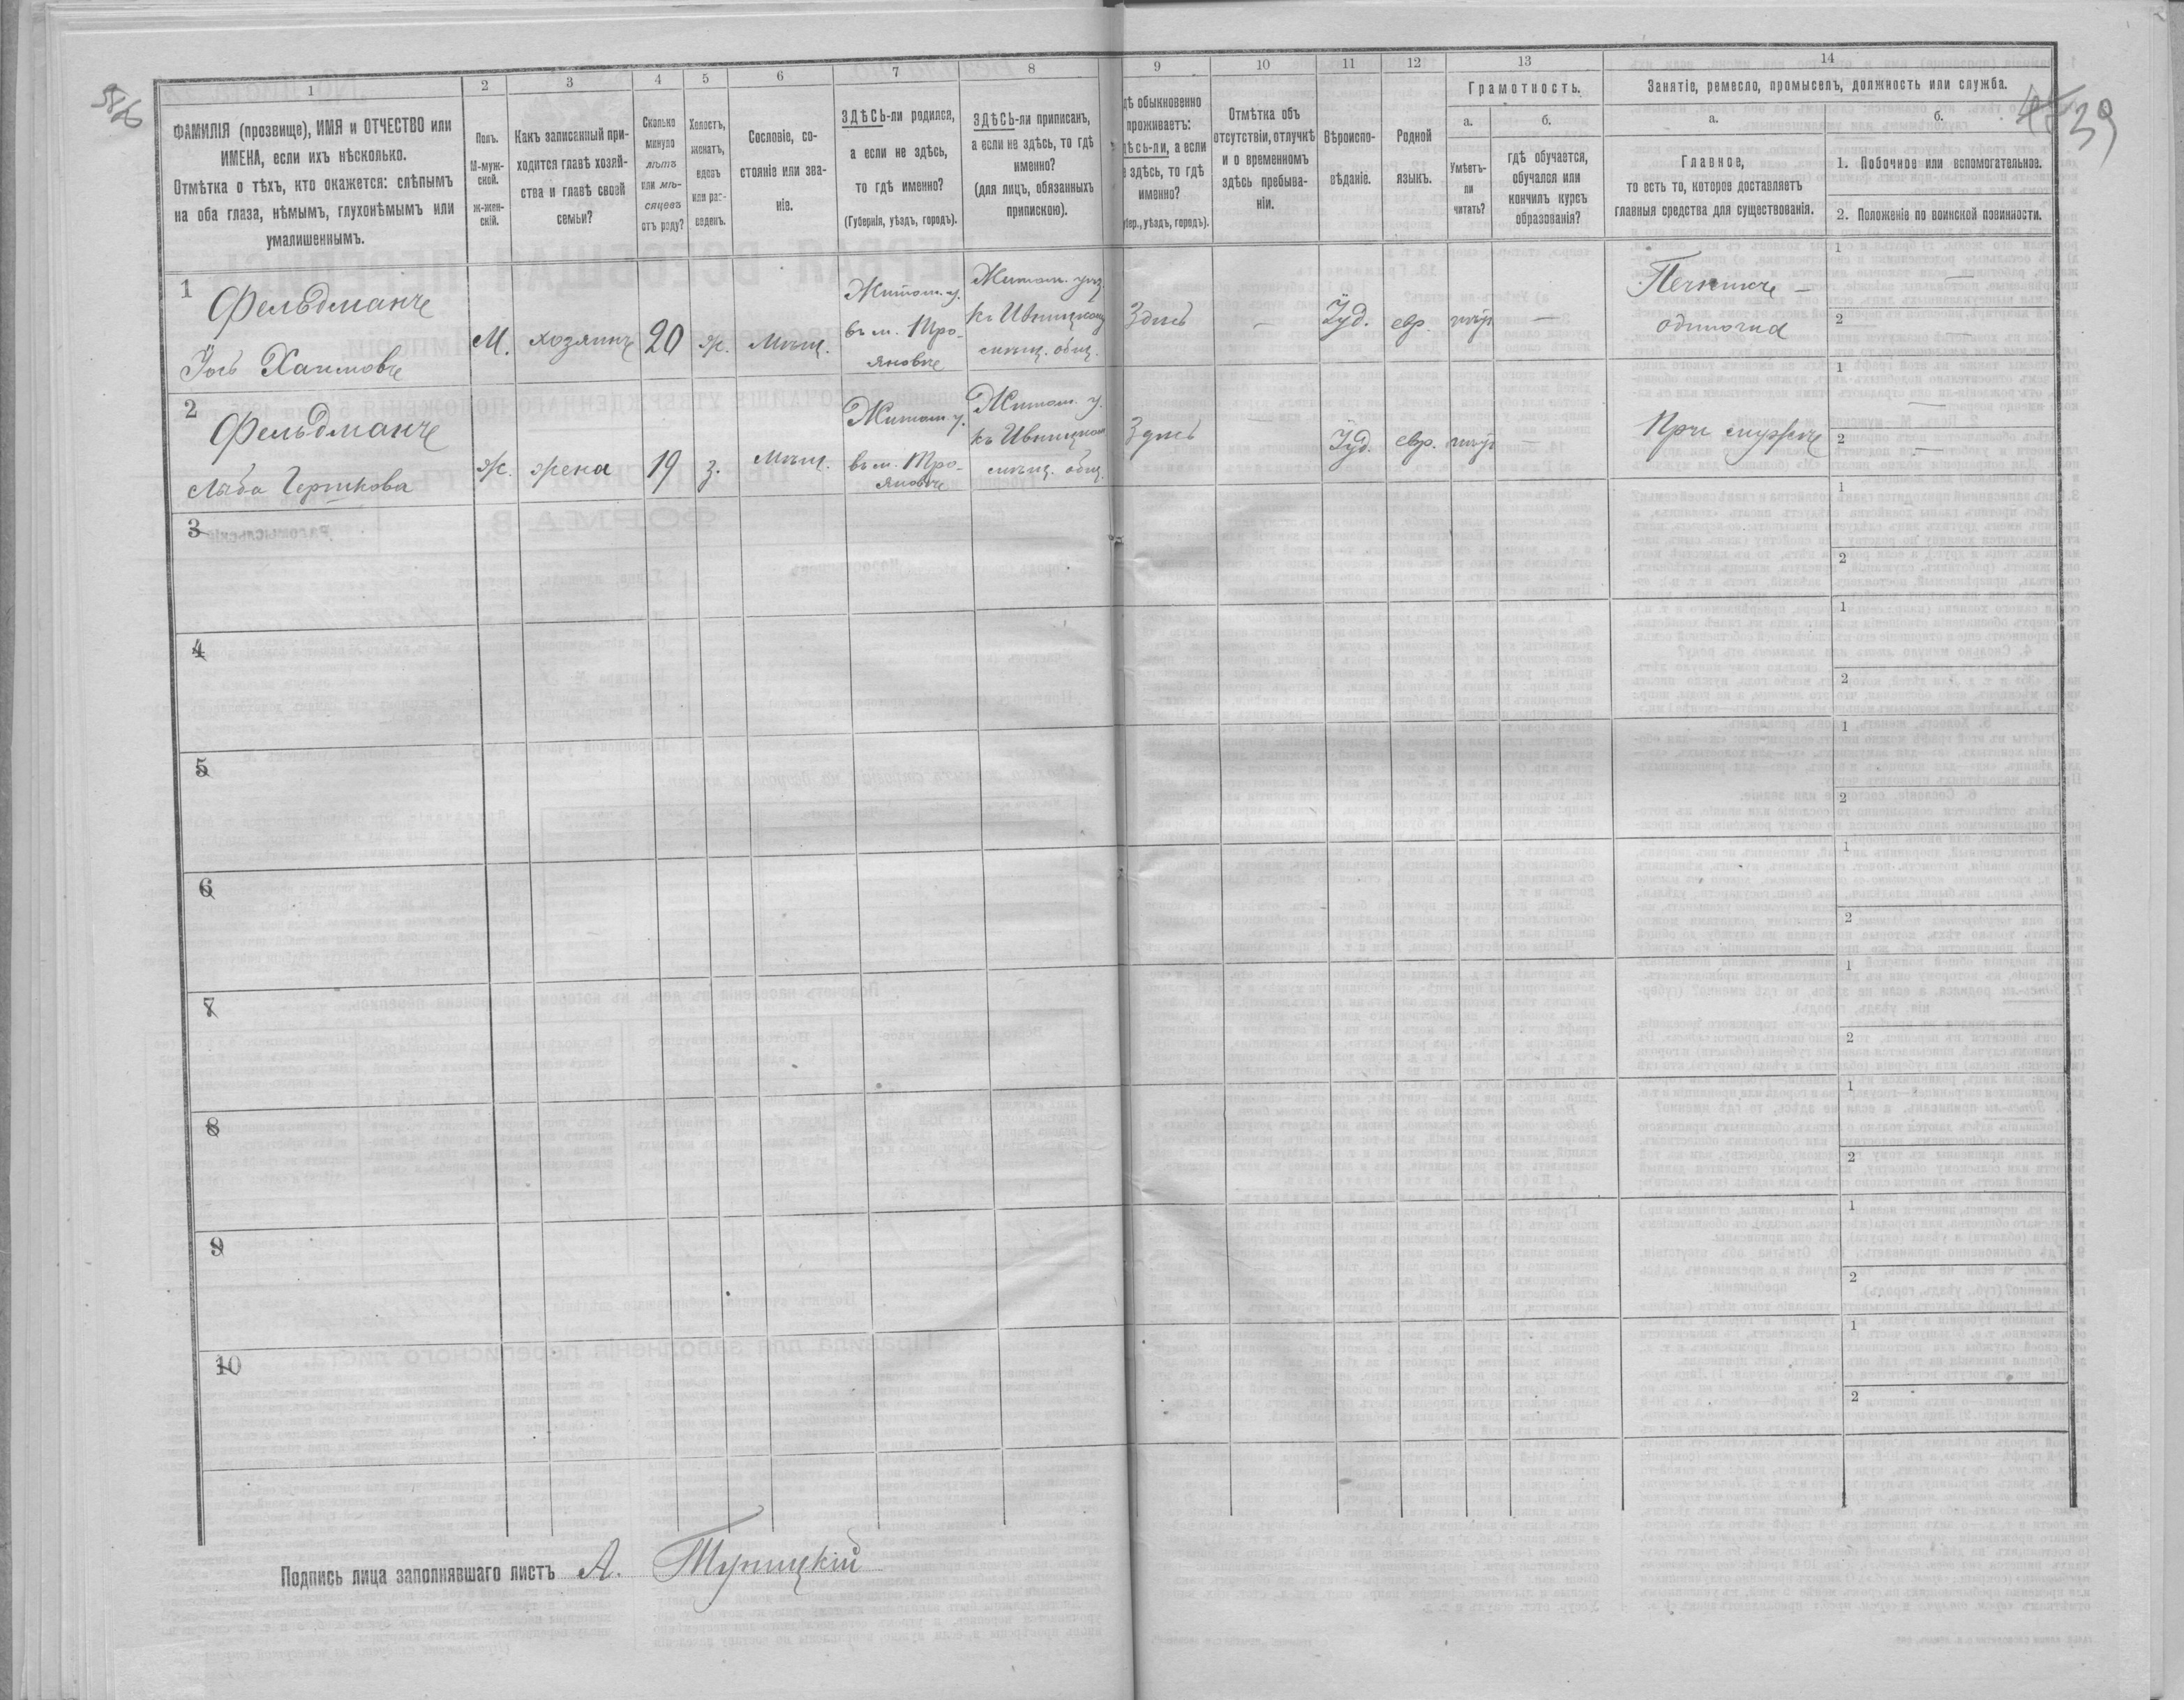 39
1 2 3 4 5 6 7 8 9 10 11 12 13 14
ФАМИЛІЯ (прозвище), ИМЯ и ОТЧЕСТВО или
ИМЕНА, если ихъ нѣсколько.
Отмѣтка о тѣхъ, кто окажется: слѣпымъ
на оба глаза, нѣмымъ, глухонѣмымъ или
умалишеннымъ.
Полъ.
М-муж-
ской.
ж-жен-
скій.
Какъ записанный при-
ходится главѣ хозяй-
ства и главѣ своей
семьи?
Сколько
минуло
лѣтъ
или мѣ-
сяцевъ
отъ роду?
Холостъ,
женатъ,
вдовъ
или раз-
веденъ.
Сословіе, со-
стояніе или зва-
ніе.
ЗДѢСЬ-ли родился,
а если не здѣсь,
то гдѣ именно?
(Губернія, уѣздъ, городъ).
ЗДѢСЬ-ли приписанъ,
а если не здѣсь, то гдѣ
именно?
(для лицъ, обязанныхъ
припискою).
дѣ обыкновенно
проживаетъ:
дѣсь-ли, а если
е здѣсь, то гдѣ
именно?
убер., уѣздъ, городъ).
Отмѣтка объ
отсутствіи, отлучкѣ
и о временномъ
здѣсь пребыва-
ніи.
Вѣроиспо-
вѣданіе.
Родной
языкъ.
Грамотность.
а.
Умѣетъ-
ли
читать?
б.
гдѣ обучается,
обучался или
кончилъ курсъ
образованія?
Занятіе, ремесло, промыселъ, должность или служба.
а.
Главное,
то есть то, которое доставляетъ
главныя средства для существованія.
б.
1. Побочное или вспомогательное.
2. Положеніе по воинской повинности.
1
Фельдманъ
Іось Хаимовъ
М.
хозяинъ
20
ж.
Мѣщ.
Житом. у.
въ м. Тро-
яновѣ
Житом. уѣз.
къ Ивницкому
мѣщ. общ.
Здѣсь
—
Іуд.
евр.
—
Печникъ —
одиночка
1 —
2 —
2
Фельдманъ
Лыба Гершкова
Ж.
жена
19
з.
Мѣщ.
Житом. у.
въ м. Тро-
яновѣ
Житом. у.
къ Ивницком
мѣщ. общ.
Здѣсь
Іуд.
евр.
—
При мужѣ
1 —
2 —
3
1
2
4
1
2
5
1
2
6
1
2
7
1
2
8
1
2
9
1
2
10
1
2
Подпись лица заполнявшаго листъ А. Тупицкій